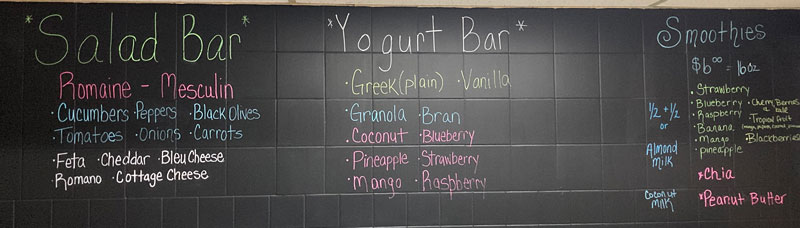 *Salad Bar*
Romaine - Mesculin
·Cucumbers ·Peppers ·Black Olives
·Tomatoes ·Onions ·Carrots
·Feta ·Cheddar ·Bleu Cheese
·Romano ·Cottage Cheese
*Yogurt Bar*
·Greek(plain) ·Vanilla
·Granola ·Bran
·Coconut ·Blueberry
·Pineapple ·Strawberry
·Mango ·Raspberry
Smoothies
$6.00 = 16oz
1/2 + 1/2
or
Almond
Milk
Coconut
Milk
·Strawberry
·Blueberry
·Raspberry
·Banana
·Mango
·pineapple
·Cherry, Berries
& kale
·Tropical fruit
·Blackberries
*Chia
*Peanut Butter